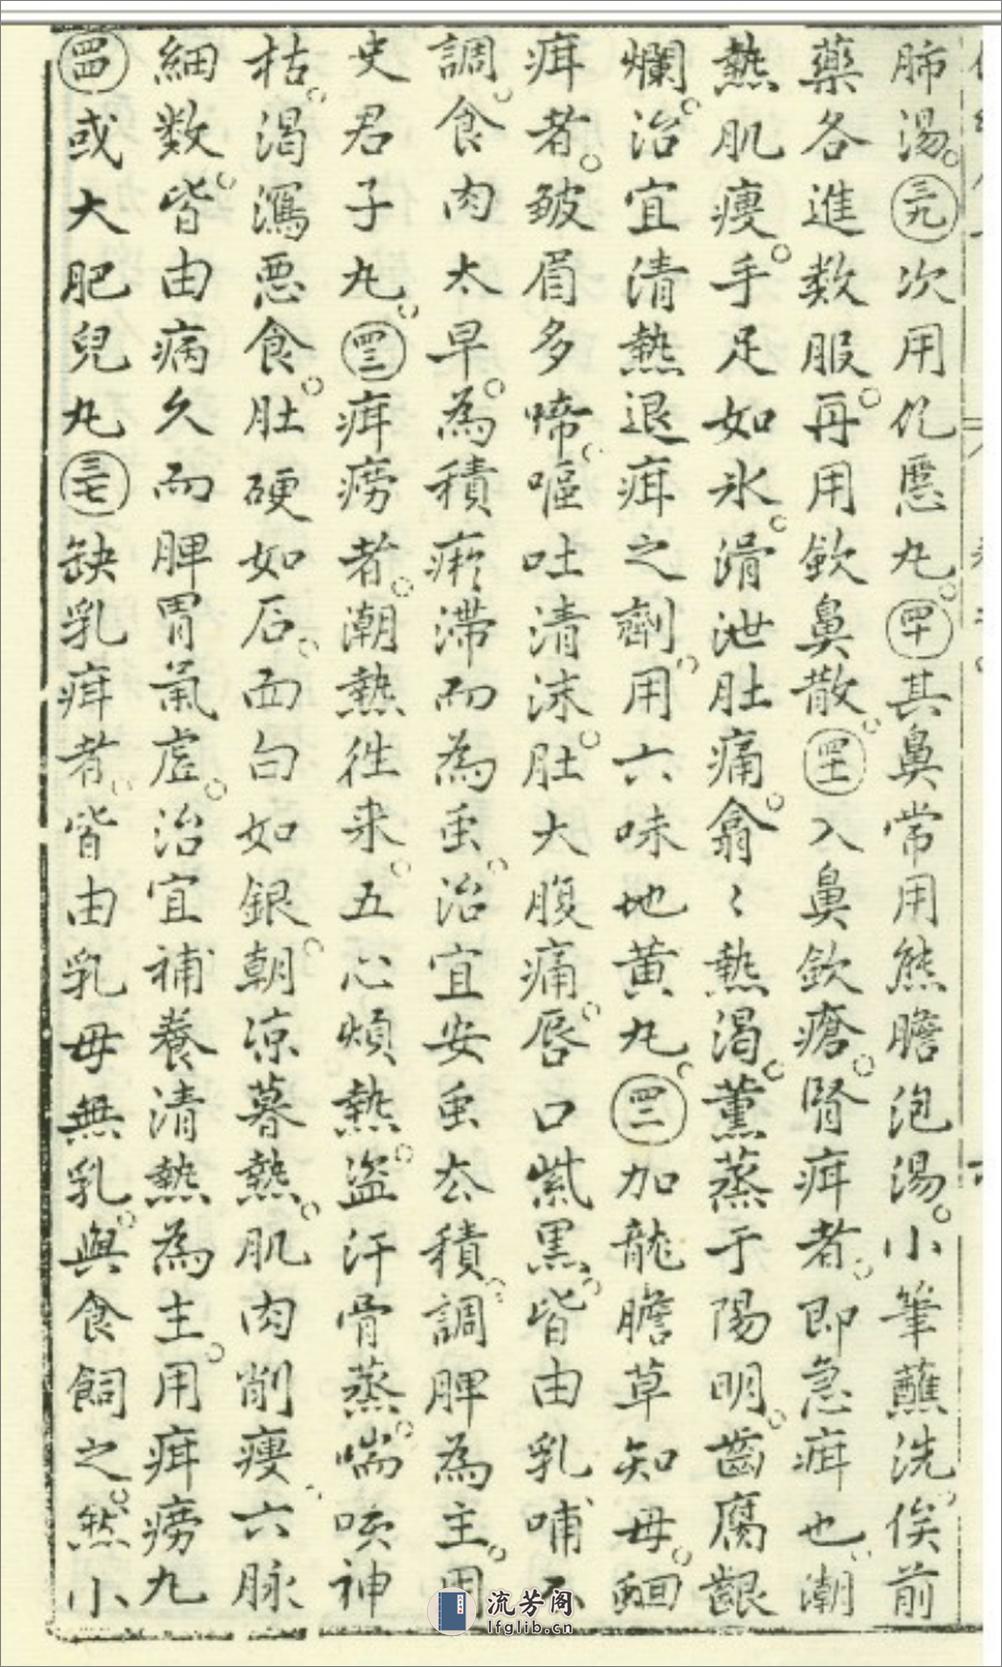 肺湯。三九次用化䘌丸。四十其鼻常用熊膽泡湯。小筆蘸洗俟前
藥各進数服。再用欽鼻散。四十一入鼻欽瘡。腎疳者。即急疳也。潮
熱肌瘦。手足如氷。滑泄肚痛。翕〻熱渴。薰蒸于陽明。齒腐齦
爛。治宜清熱退疳之劑。用六味地黄丸。四二加龍膽草知母。蛔
疳者。皴眉多啼。嘔吐清沫。肚大腹痛。唇口紫黑。皆由乳哺不
調。食肉太早。為積瘀滯而為虫。治宜安虫去積。調脾為主。用
史君子丸。四三疳癆者。潮熱徃来。五心煩熱。盗汗骨蒸。喘咳神
枯。渴瀉惡食。肚硬如石。面白如銀。朝凉暮熱。肌肉削瘦。六脉
細数。皆由病久而脾胃氣虚。治宜補養清熱為主。用疳癆丸
四四或大肥兒丸三七缺乳疳者。皆由乳母無乳。與食飼之。然小
流芳阁
lfglib.cn